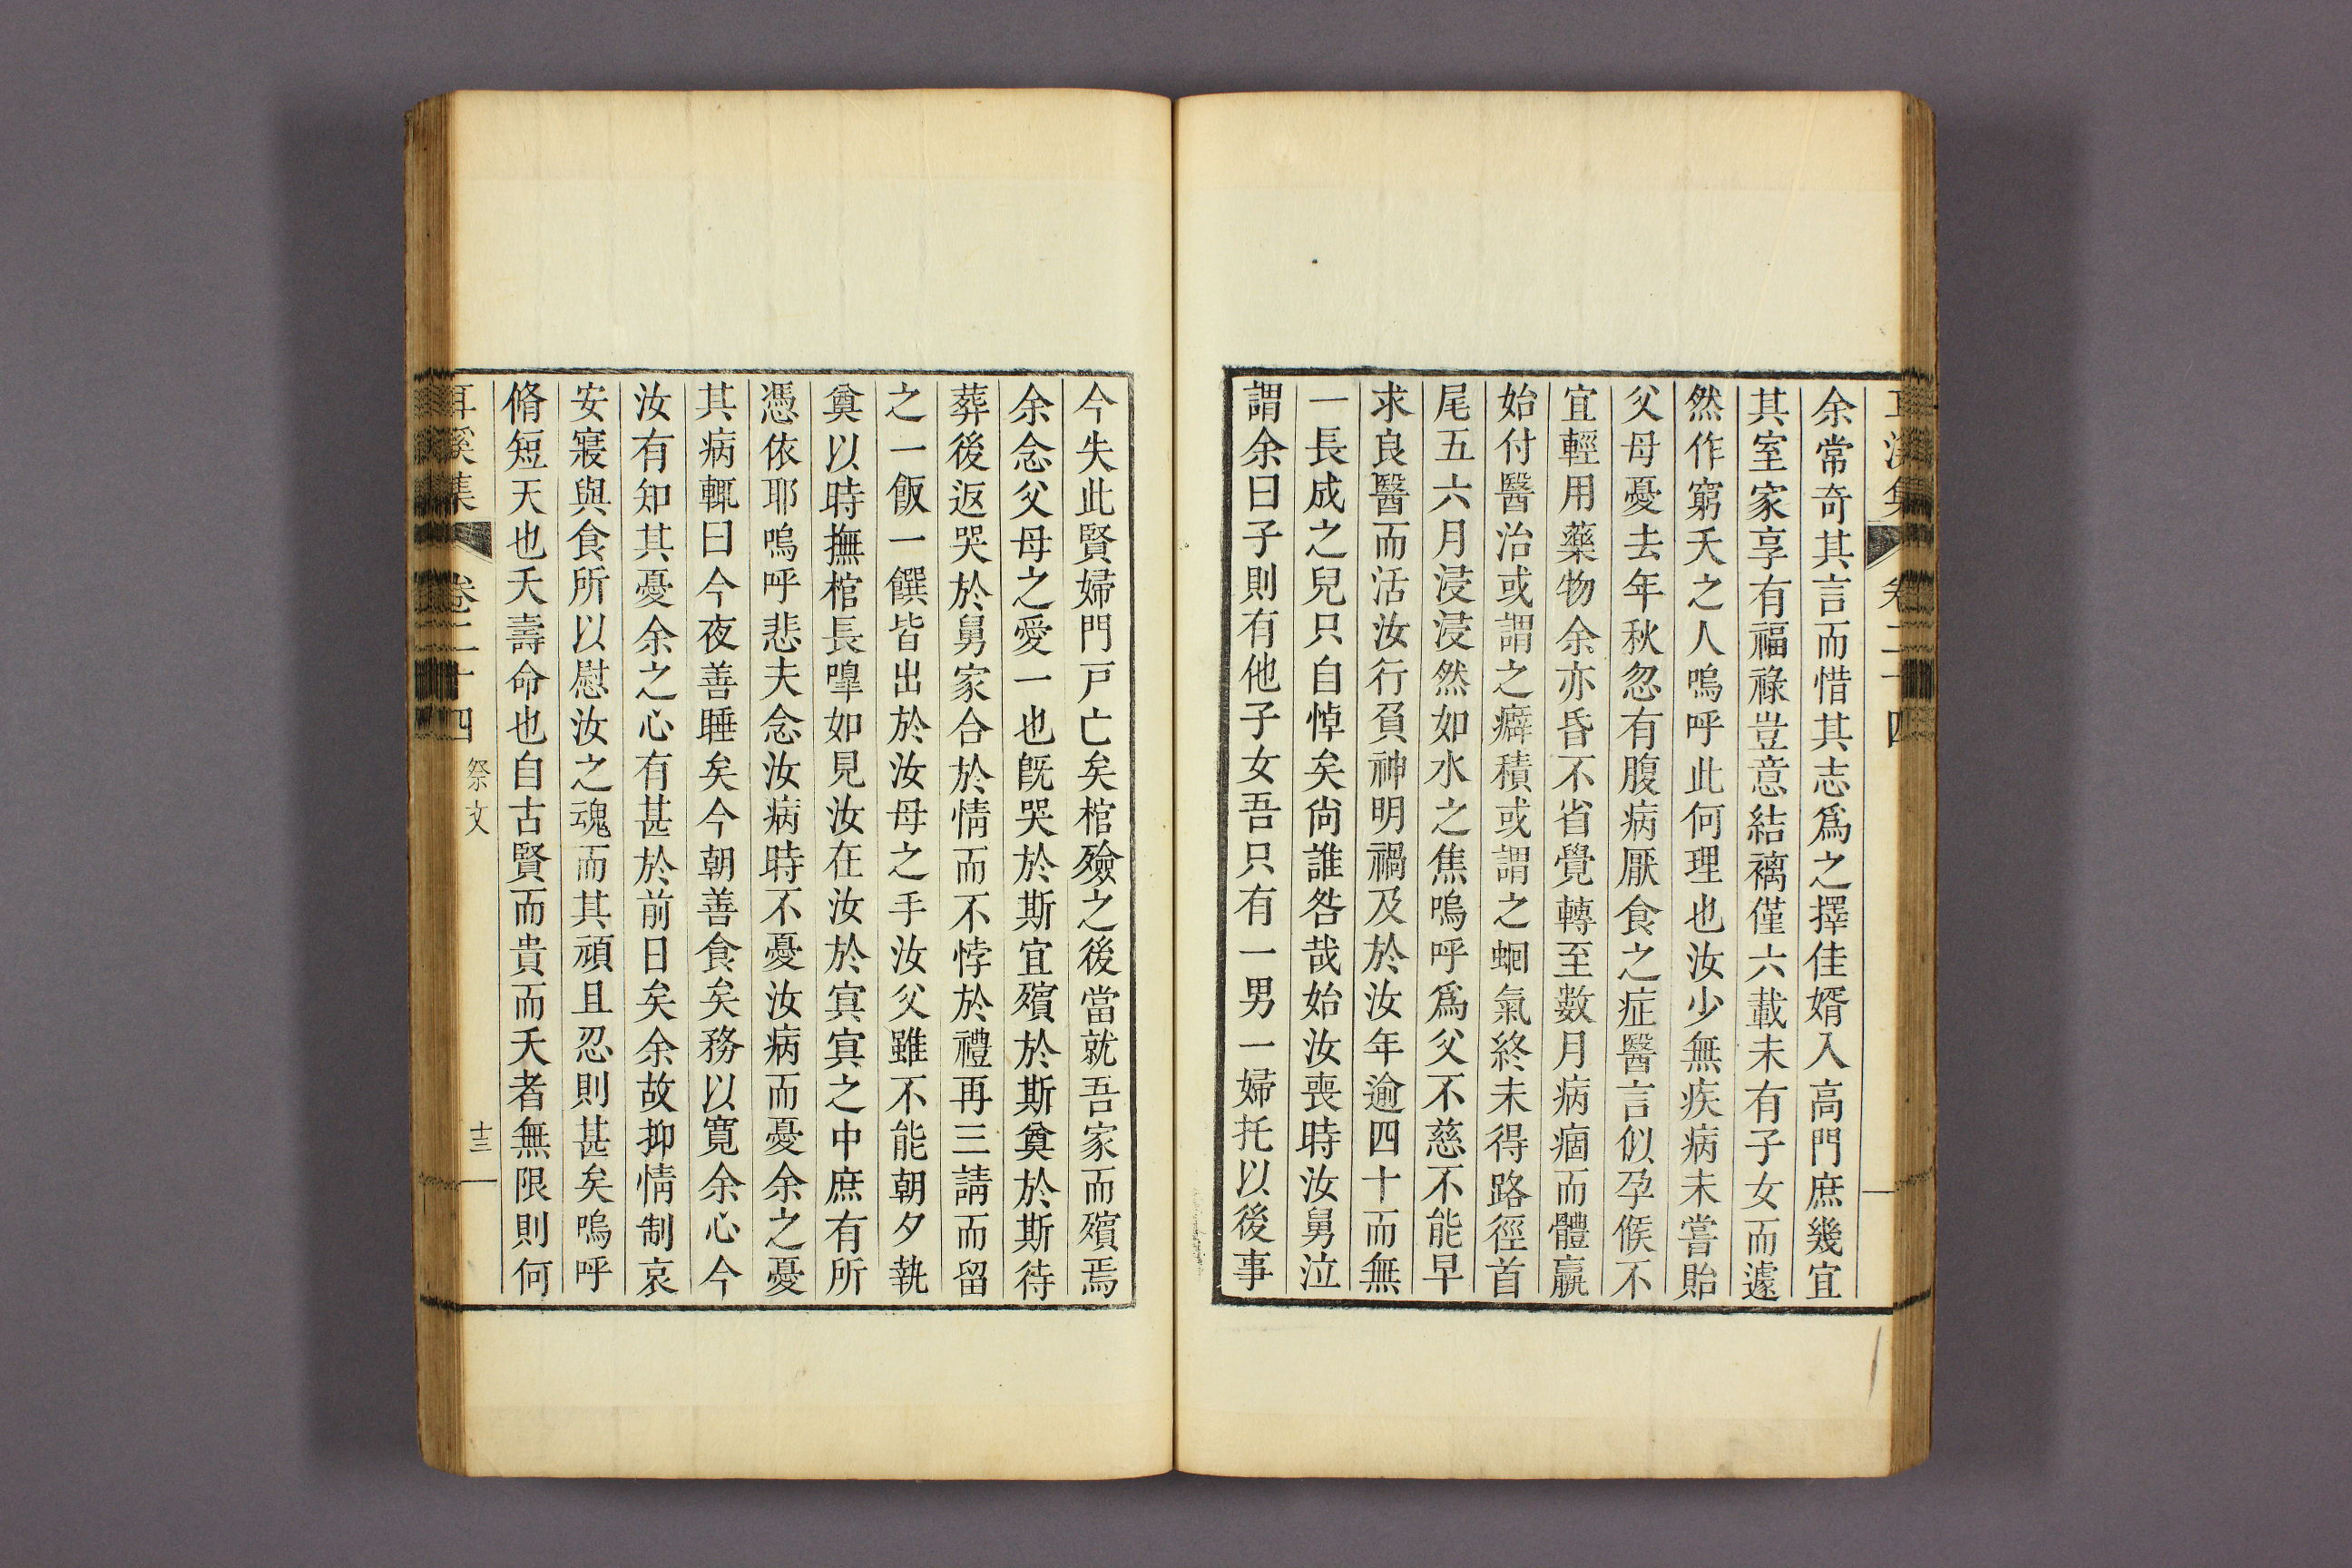 余常奇其言而惜其志爲之擇佳婿入高門庶幾宜
其室家享有福祿豈意結褵僅六載未有子女而遽
然作窮夭之人嗚呼此何理也汝少無疾病未嘗貽
父母憂去年秋忽有腹病厭食之症醫言似孕候不
宜輕用藥物余亦昏不省覺轉至數月病痼而體羸
始付醫治或謂之癖積或謂之蛔氣終未得路徑首
尾五六月浸浸然如水之焦嗚呼爲父不慈不能早
求良醫而活汝行負神明禍及於汝年逾四十而無
一長成之兒只自悼矣尙誰咎哉始汝喪時汝舅泣
謂余曰子則有他子女吾只有一男一婦托以後事
今失此賢婦門戸亡矣棺殮之後當就吾家而殯焉
余念父母之愛一也旣哭於斯宜殯於斯奠於斯待
葬後返哭於舅家合於情而不悖於禮再三請而留
之一飯一饌皆出於汝母之手汝父雖不能朝夕執
奠以時撫棺長嘷如見汝在汝於冥冥之中庶有所
憑依耶嗚呼悲夫念汝病時不憂汝病而憂余之憂
其病輒曰今夜善睡矣今朝善食矣務以寬余心今
汝有知其憂余之心有甚於前日矣余故抑情制哀
安寢與食所以慰汝之魂而其頑且忍則甚矣嗚呼
脩短天也夭壽命也自古賢而貴而夭者無限則何
耳溪集 卷二十四 祭文 十三